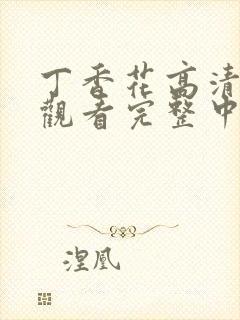 丁香花高清
觀看完整中
涅凰